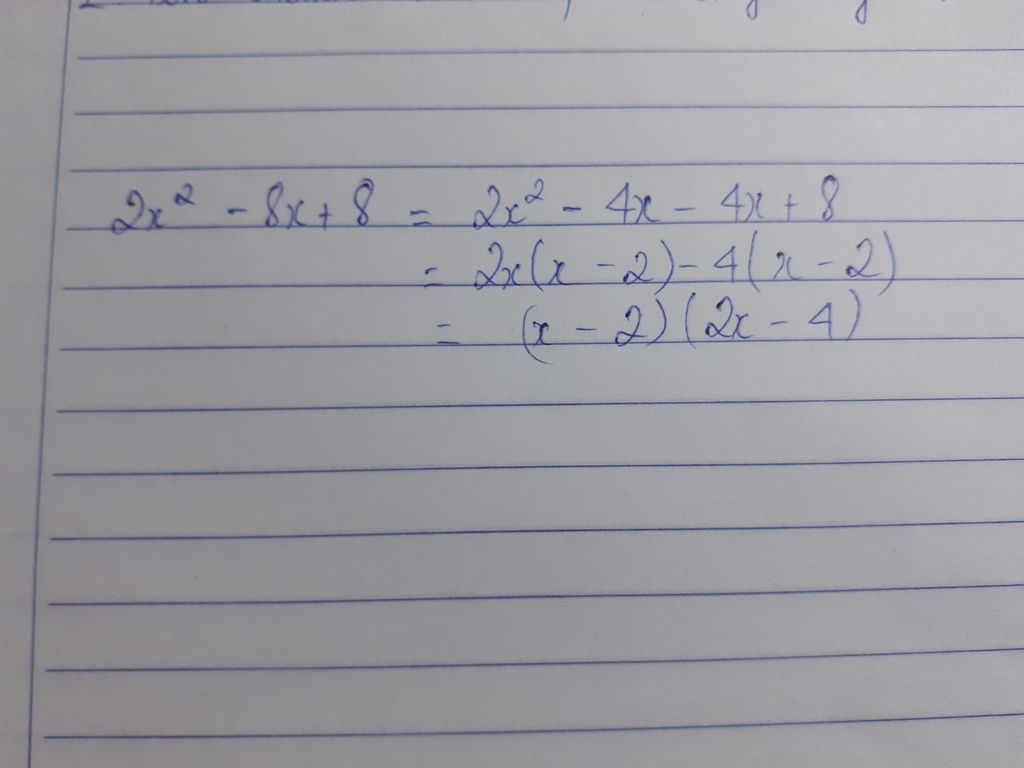 2x² - 8x + 8 = 2x² - 4x - 4x + 8
= 2x(x - 2) - 4(x - 2)
= (x - 2)(2x - 4)